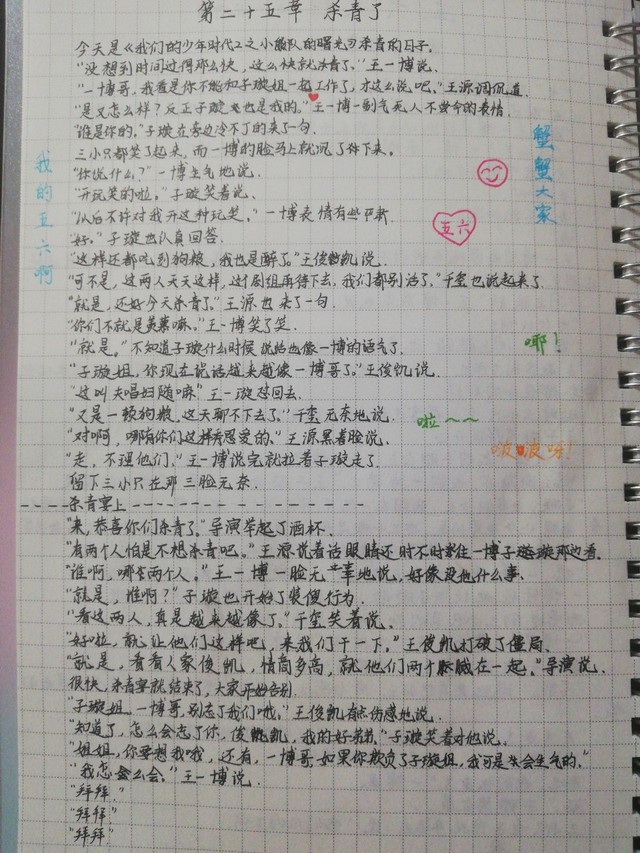 第二十五章 杀青了
今天是《我们的少年时代2之小熊队的曙光》杀青的日子.
"没想到时间过得那么快,这么快就杀青了."王一博说.
"一博哥,我看是你不能和子璇姐一起工作了,才这么说吧."王源调侃道.
"是又怎么样?反正子璇也是我的."王一博一副气死人不偿命的表情.
"谁是你的."子璇在旁边冷不丁的来了一句.
三小只都笑了起来,而一博的脸马上就沉了下来.
"你说什么?"一博生气地说.
"开玩笑的啦."子璇笑着说.
"以后不许对我开这种玩笑."一博表情有些
"好."子璇也认真回答.
"这样还都吃到狗粮,我也是醉了."王俊凯说.
"可不是,这两人天天这样,这个剧组再待下去,我们都别活了."千玺也说起来了.
"就是,还好今天杀青了."王源也来了一句.
"你们不就是羡慕嘛."王一博笑了笑.
"就是."不知道子璇什么时候说话也像一博的语气了.
"子璇姐,你现在说话越来越像一博哥了."王俊凯说.
"这叫夫唱妇随嘛."王一璇怼回去.
"又是一顿狗粮,这天聊不下去了."千玺无奈地说.
"对啊,哪有你们这样秀恩爱的."王源黑着脸说.
"走,不理他们."王一博说完就拉着子璇走了.
留下三小只在那三脸无奈.
杀青宴上
"来,恭喜你们杀青了."导演举起了酒杯.
"有两个人怕是不想杀青吧."王源说着话眼睛还时不时往一博子璇那边看.
"谁啊,哪有两个人."王一博一脸无辜地说,好像没他什么事.
"就是,谁啊?"子璇也开始了装傻行为.
"看这两人,真是越来越像了."千玺笑着说.
"好啦,就让他们这样吧,来我们干一下."王俊凯打破了僵局.
"就是,看看人家俊凯,情商多高,就他们两个 在一起."导演说.
很快,杀青宴就结束了,大家开始告别.
"子璇姐,一博哥,别忘了我们哦."王俊凯有点伤感地说.
"知道了,怎么会忘了你,俊凯,我的好弟弟."子璇笑着对他说.
"姐姐,你要想我哦,还有,一博哥,如果你欺负了子璇姐,我可是会生气的."
"我怎么会."王一博说.
"拜拜."
"拜拜."
"拜拜"
我的五六啊
蟹蟹大家
五六
嘟!
啦~~
啵啵呀!